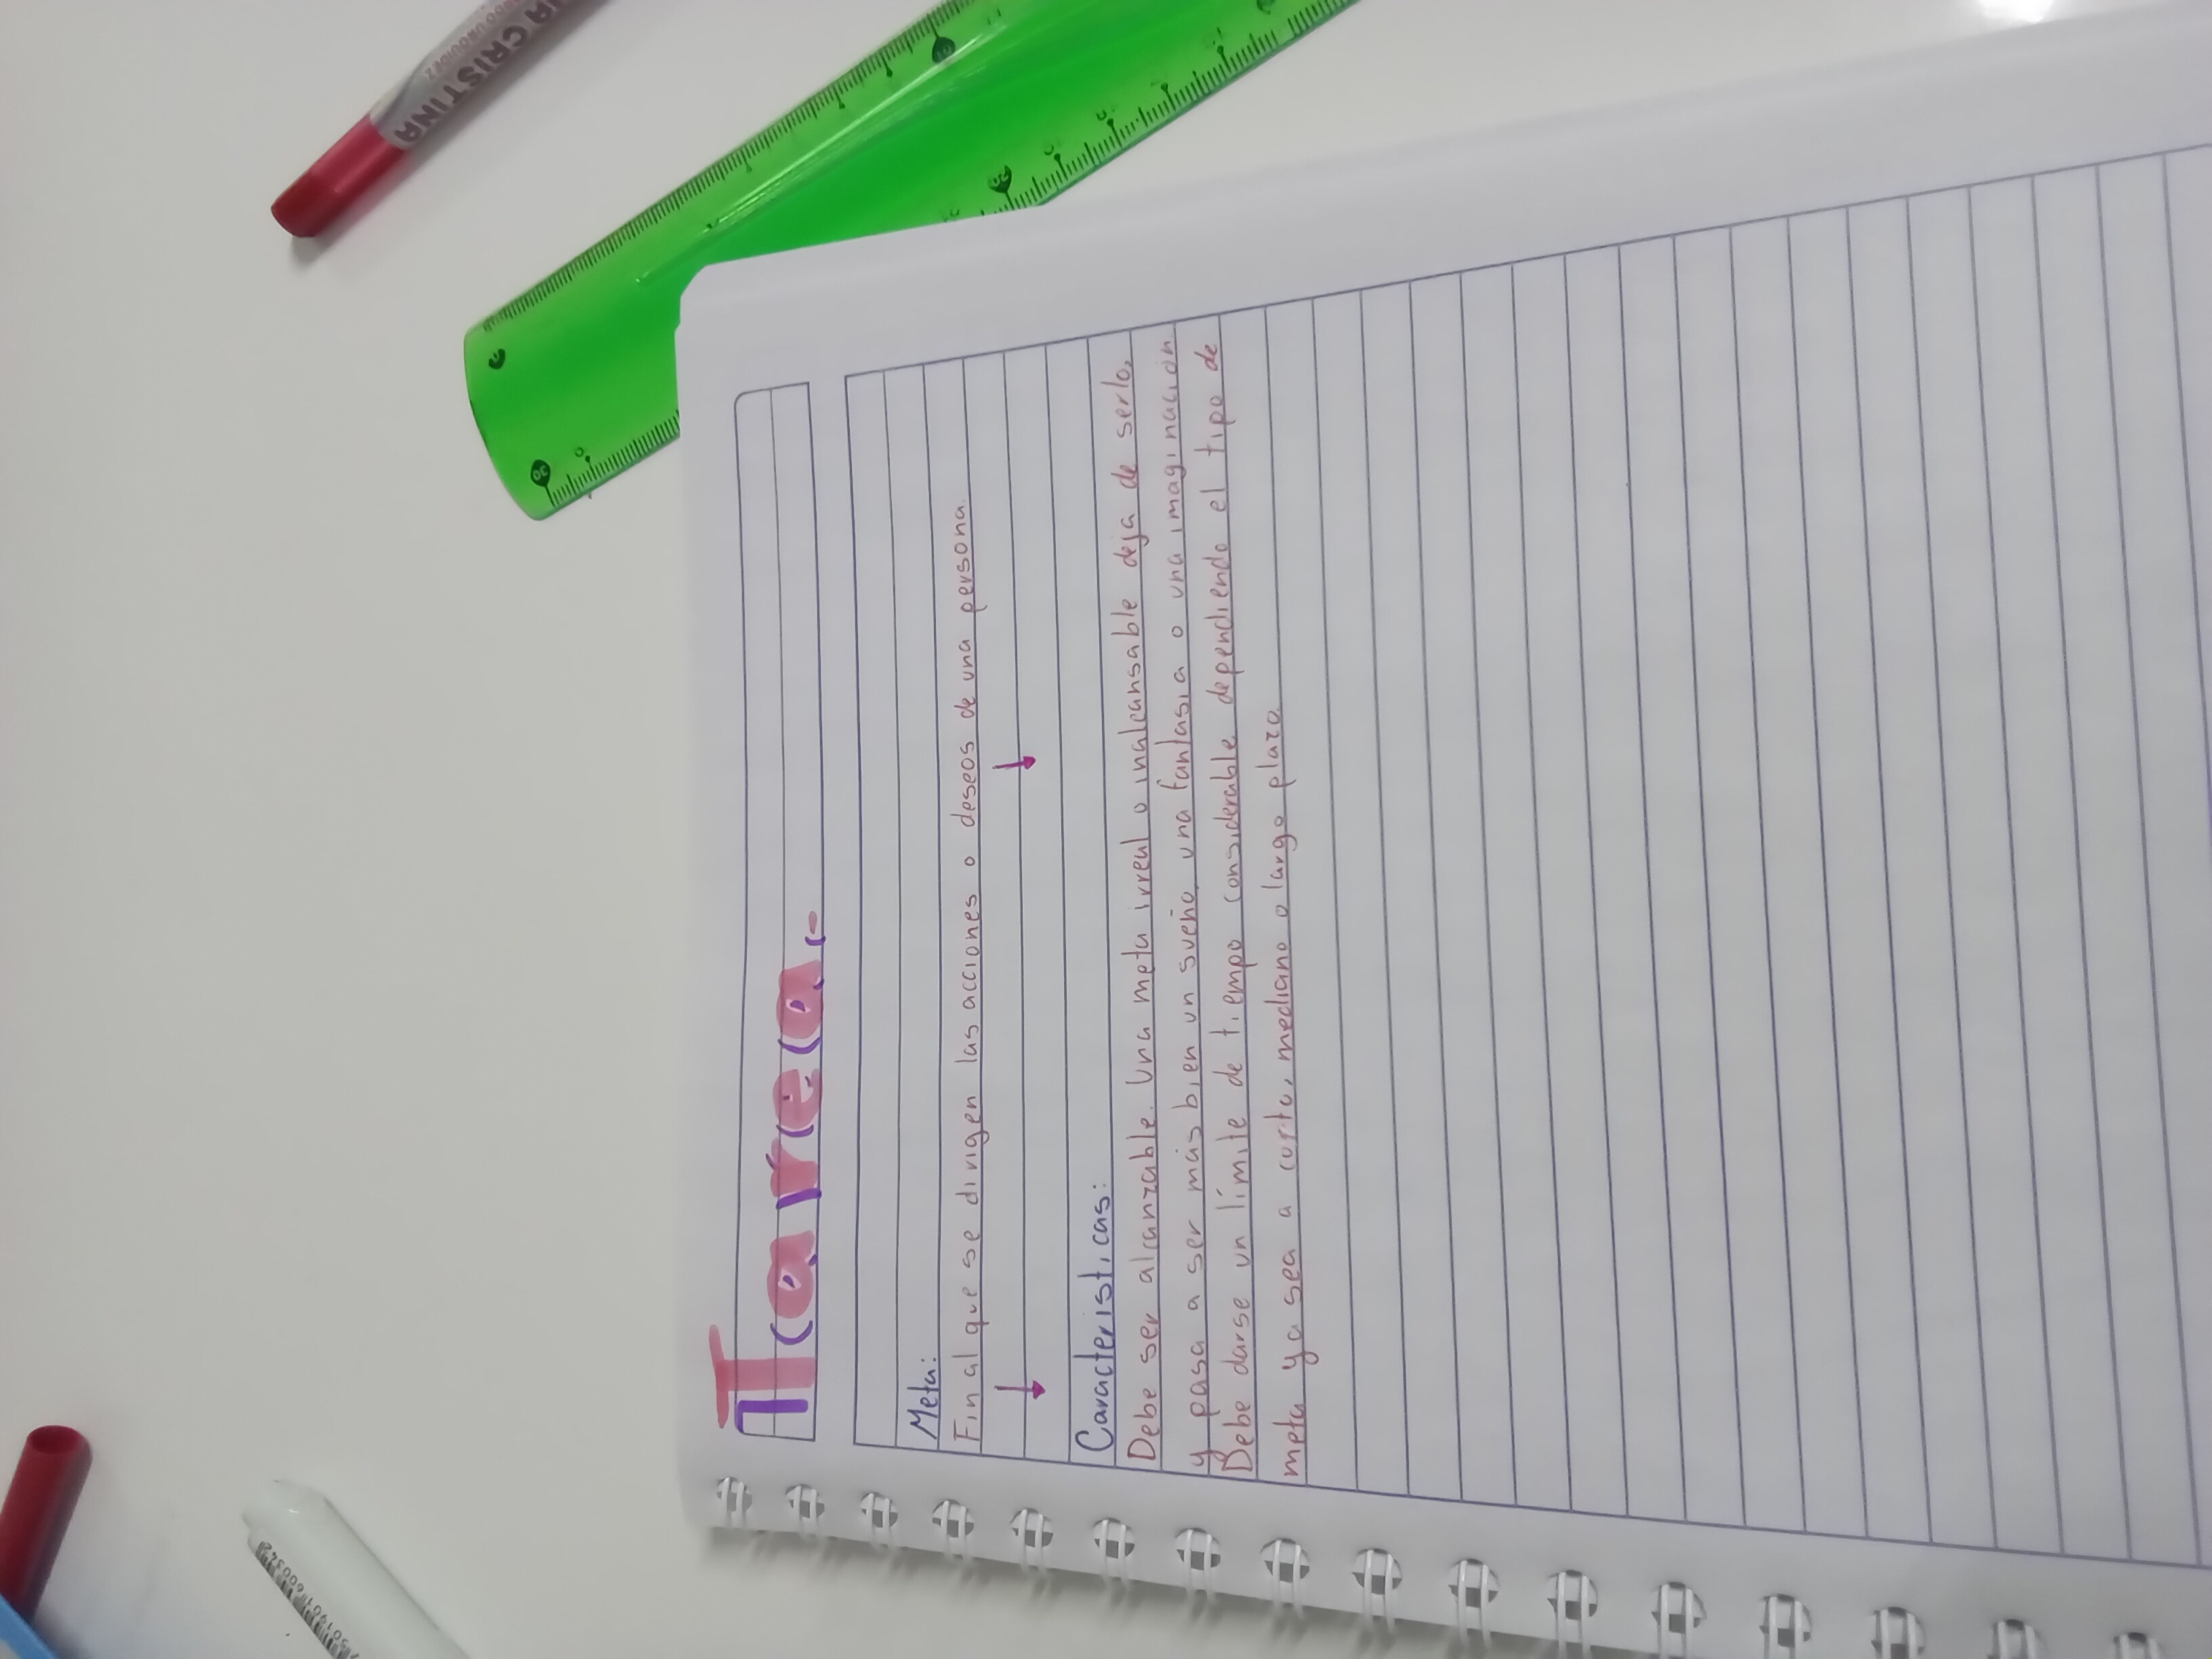 Tarea:-
Meta:
Final que se dirigen las acciones o deseos de una persona.
Caracteristicas:
Debe ser alcanzable. Una meta irreal o inalcansable deja de serlo,
y pasa a ser más bien un sueño, una fantasia o una imaginación
Debe darse un límite de tiempo considerable dependiendo el tipo de
meta ya sea a corto, mediano o largo plazo.
CRISTINA
30